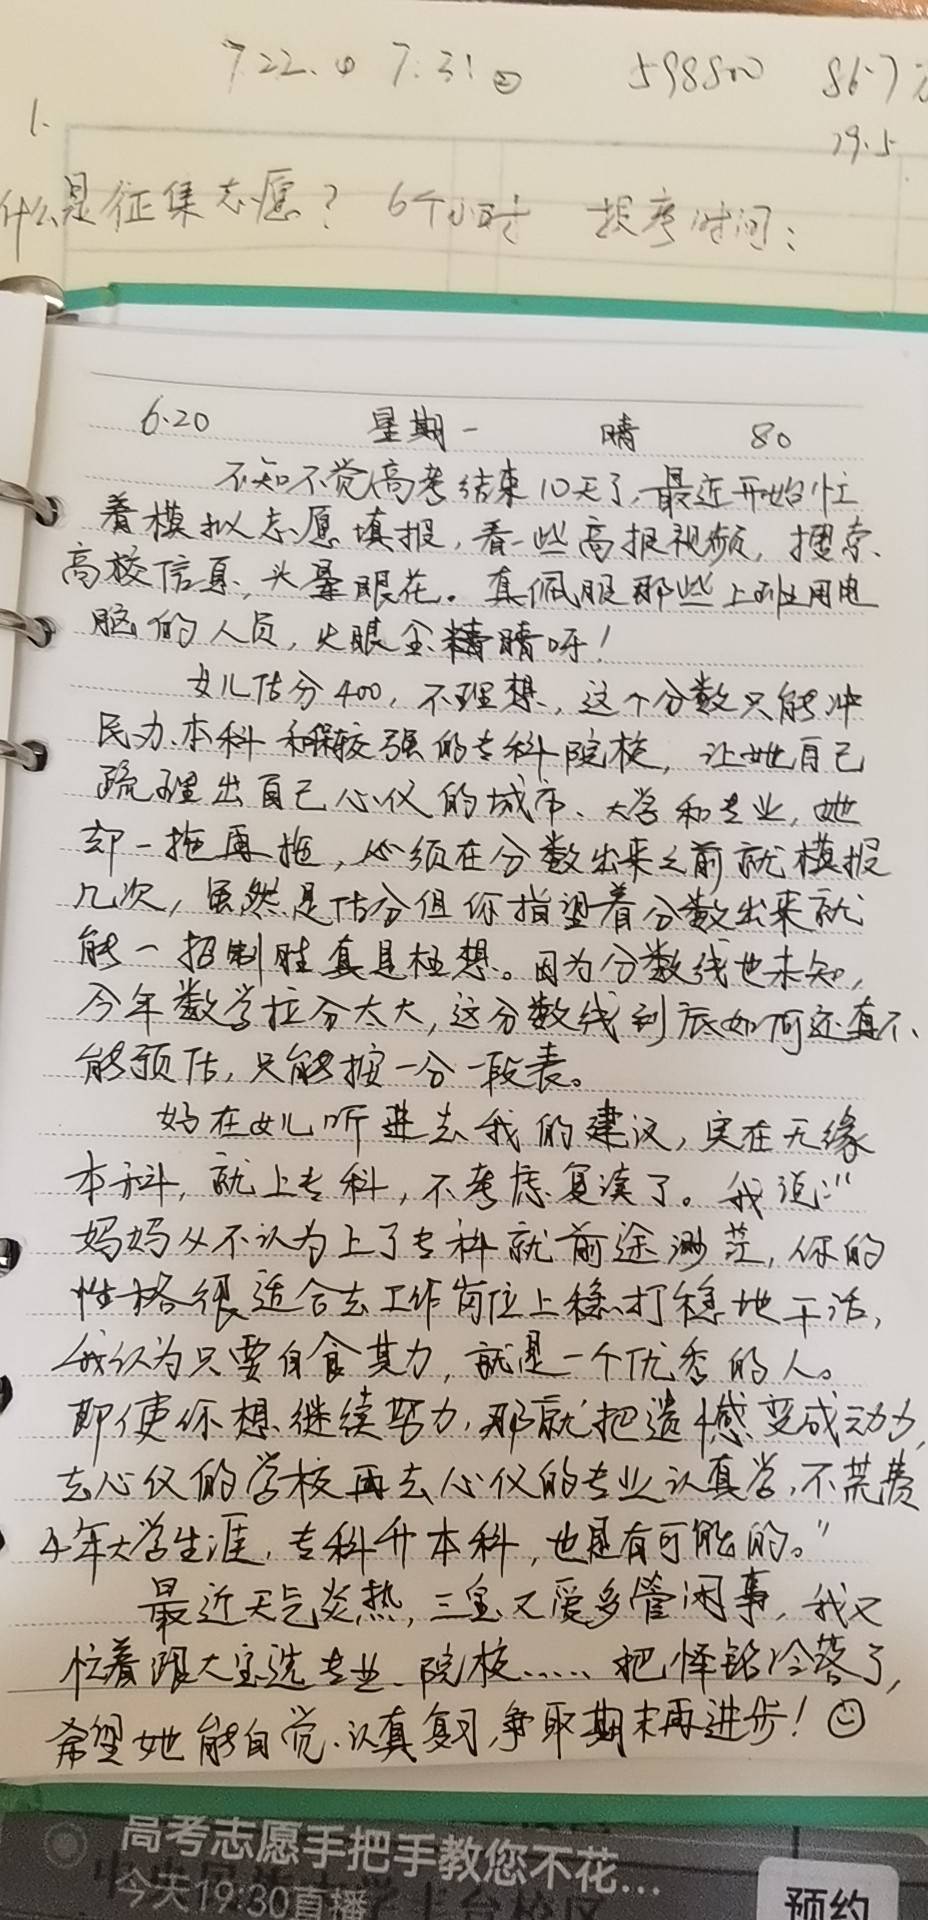 7.22.④ 7.31
598800 86.7万
1.
19.5
什么是征集志愿？ 6个小时 报考时间：
6.20 星期一 晴 80
不知不觉高考结束10天了，最近开始忙
着模拟志愿填报，看一些高报视频，搜索
高校信息、头晕眼花。真佩服那些上班用电
脑的人员，火眼金睛呀！
女儿估分400，不理想，这个分数只能冲
民办本科和保较强的专科院校，让她自己
疏理出自己心仪的城市、大学和专业，她
却一拖再拖，必须在分数出来之前就模报
几次，虽然是估分但你指望着分数出来就
能一招制胜真是枉想。因为分数线也未知，
今年数学拉分太大，这分数线到底如何还真不
能预估，只能按一分一段表。
好在女儿听进去我的建议，实在无缘
本科，就上专科，不考虑复读了。我说：“
妈妈从不认为上了专科就前途渺茫，你的
性格很适合去工作岗位上稳打稳地干活，
我认为只要自食其力，就是一个优秀的人。
即使你想继续努力，那就把遗憾变成动力，
去心仪的学校再去心仪的专业认真学，不荒费
4年大学生涯，专科升本科，也是有可能的。”
最近天气炎热，三宝又爱多管闲事，我又
忙着跟大宝选专业、院校……把怿铭冷落了，
希望她能自觉、认真复习，争取期末再进步！
高考志愿手把手教您不花...
今天19:30直播
预约